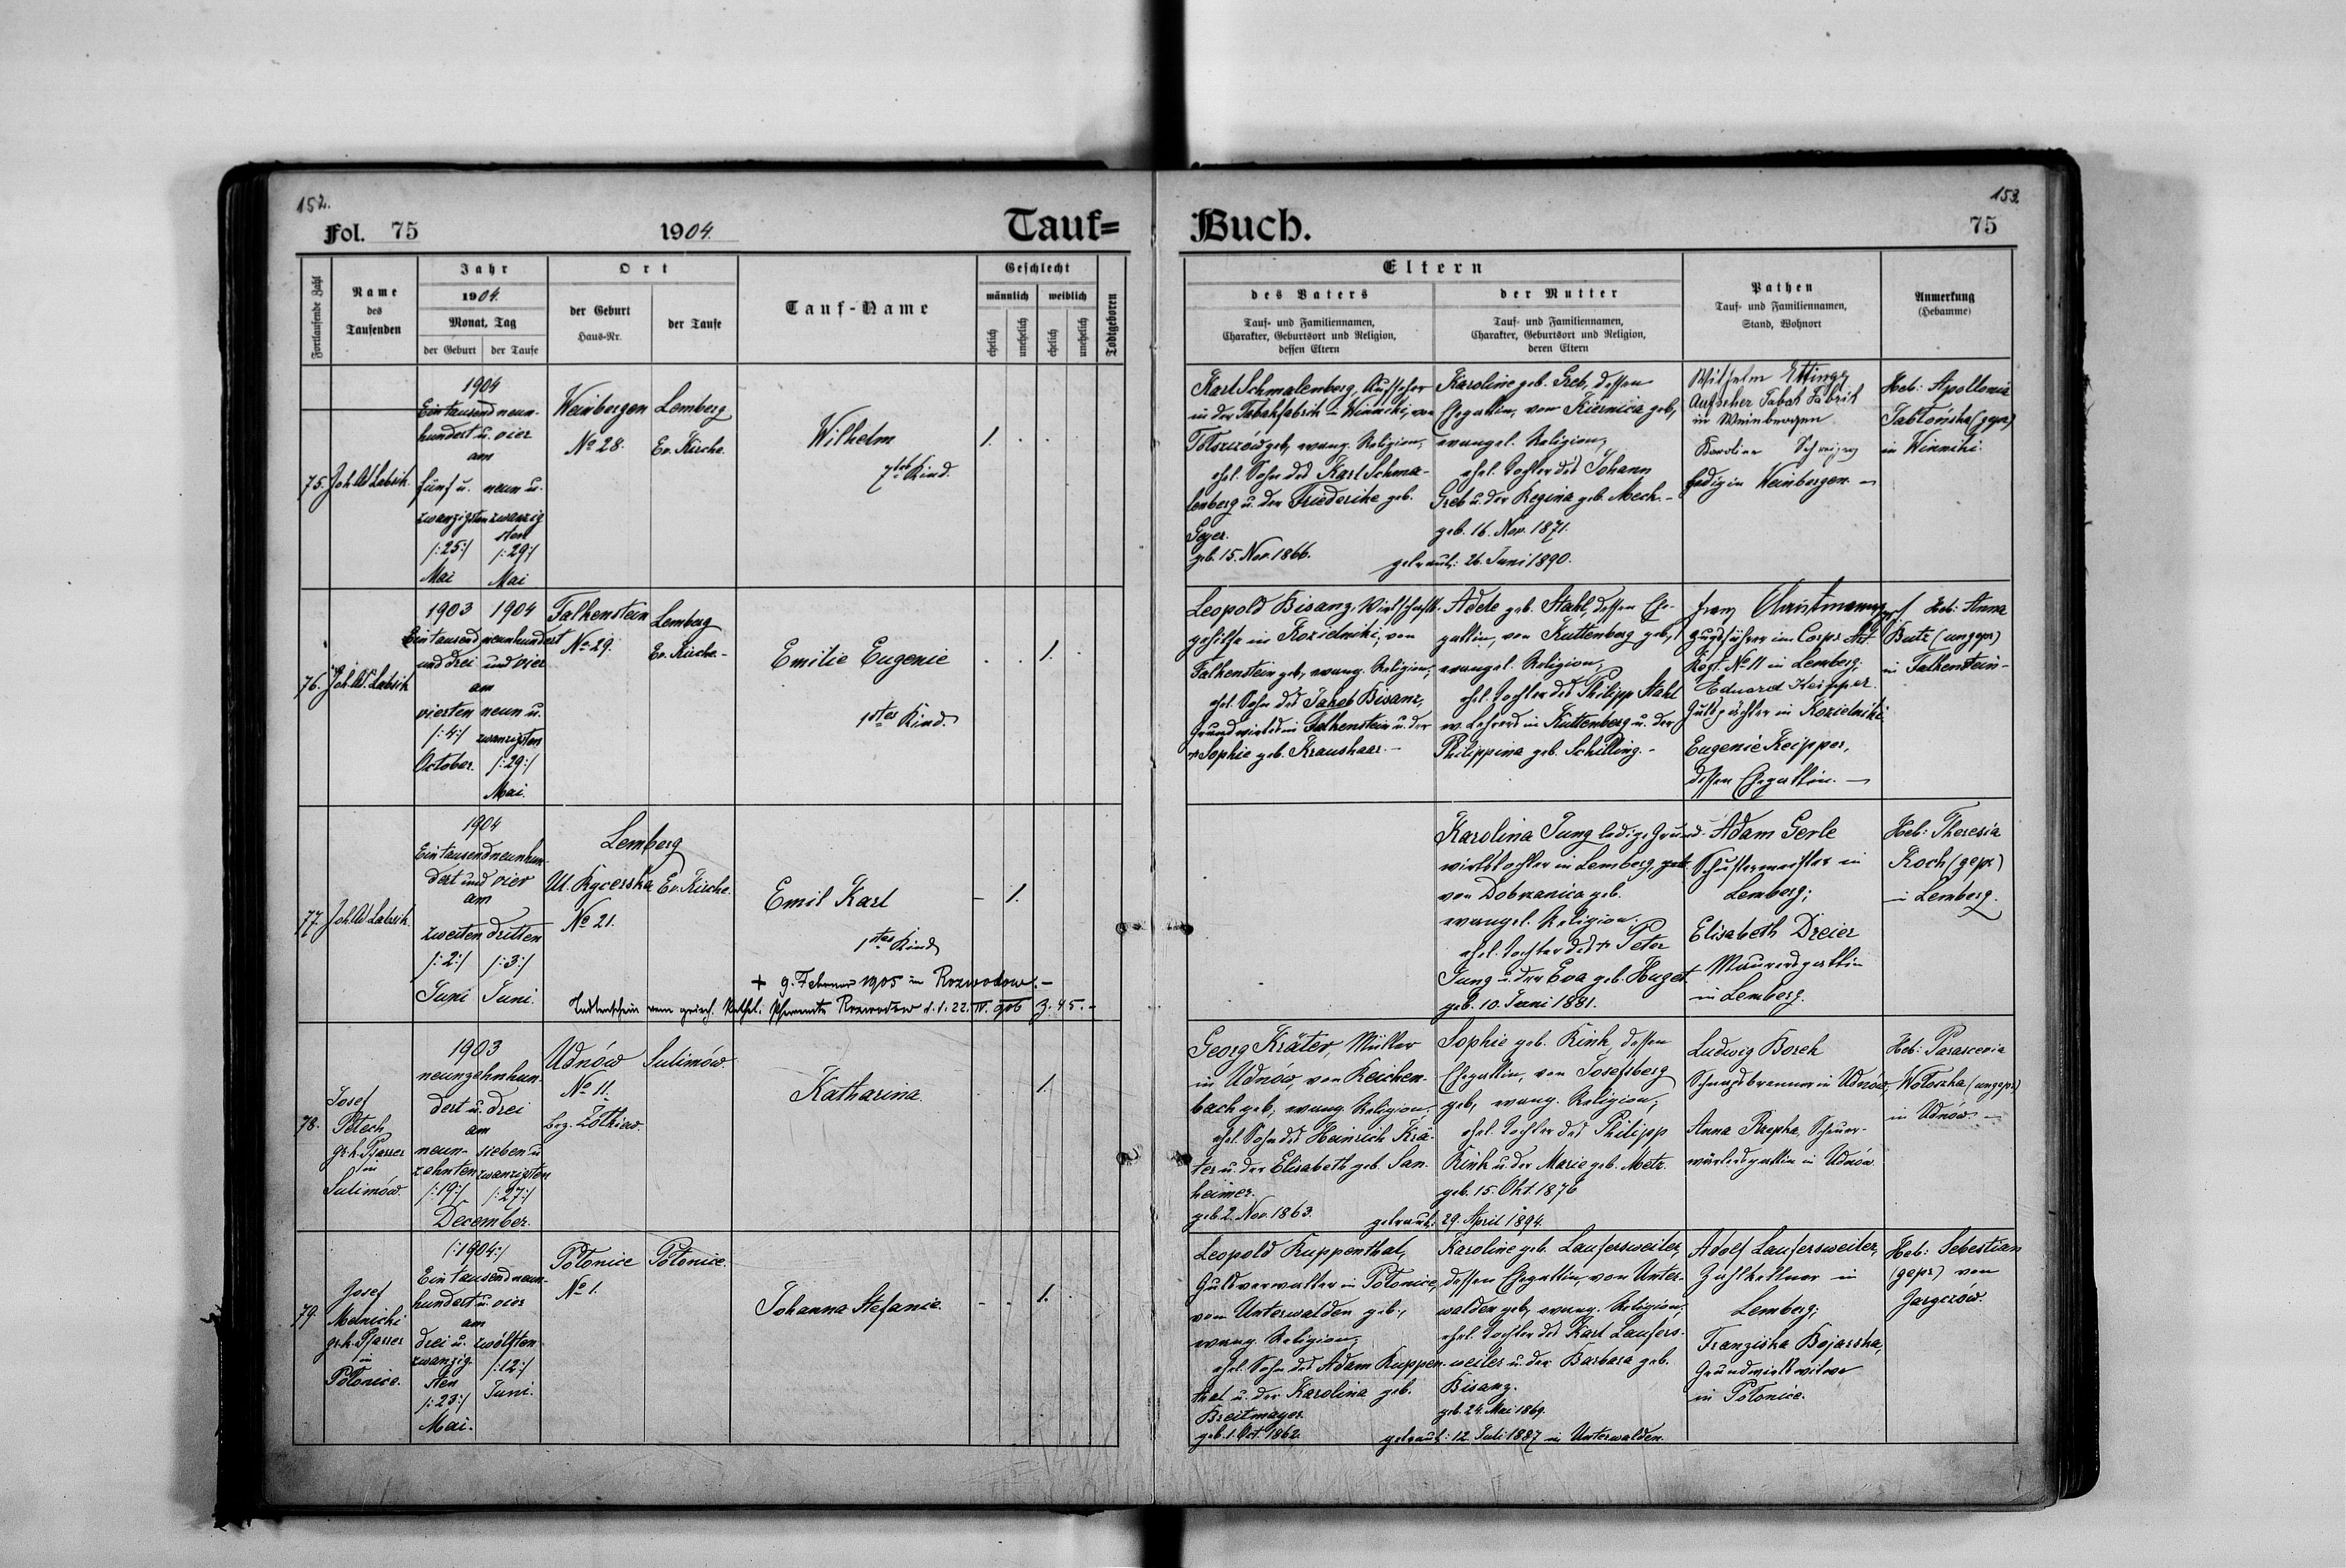 152.
Fol. 75
1904.
Tauf=
Fortlaufende Zahl
Name
des
Taufenden
Jahr
1904.
Monat, Tag
der Geburt
der Taufe
Ort
der Geburt
Haus-Nr.
der Taufe
Tauf-Name
Geschlecht
männlich
weiblich
ehelich
unehelich
ehelich
unehelich
Todtgeboren
75. Joh. Labsik.
1904
Ein tausend neun-
hundert u. vier
am
fünf u.
zwanzigsten
/:25:/
Mai
neun u.
zwanzig
sten
/:29:/
Mai
Weinbergen
No 28.
Lemberg
Ev. Kirche.
Wilhelm
7tes Kind.
1.
76. Joh. Labsik
1903 1904
Ein tausend neunhundert
und drei und vier
am
vierten
/:4:/
October.
neun u.
zwanzigsten
/:29:/
Mai.
Falkenstein
No 29.
Lemberg
Ev. Kirche-
Emilie Eugenie
1stes Kind
1.
77. Joh. Labsik.
1904
Ein tausend neunhun-
dert und vier
am
zweiten
/:2:/
Juni
dritten
/:3:/
Juni.
Lemberg
Ul. Rycerska
No 21.
Ev. Kirche.
Emil Karl
1stes Kind
1.
+ 9. Februar 1905 in Rozwadow.-
Todtenschein vom griech. kathol. Pfarramte Rozwadow d. d. 22. IV. 906 Z. 45.-
78.
Josef
Petech
gr. k. Pfarrer
in
Sulimów.
1903
neunzehnhun-
dert u. drei
am
neun-
zehnten
/:19:/
sieben u
zwanzigsten
/:27:/
December.
Udnów
No 11.
bez. Żółkiew.
Sulimów.
Katharina.
1.
79.
Josef
Melnicki
gr. k. Pfarrer
in
Połonice.
/:1904:/
Ein tausend neun-
hundert u. vier
am
drei u.
zwanzig-
sten
/:23:/
Mai.
zwölften
/:12:/
Juni.
Połonice
No 1.
Połonice.
Johanna Stefanie.
1.
153.
Buch.
75
Eltern
des Vaters
Tauf- und Familiennamen,
Charakter, Geburtsort und Religion,
dessen Eltern
der Mutter
Tauf- und Familiennamen,
Charakter, Geburtsort und Religion,
deren Eltern
Pathen
Tauf- und Familiennamen,
Stand, Wohnort
Anmerkung
(Hebamme)
Karl Schmalenberg, Aufseher
in der Tabakfabrik in Winniki, von
geb, evang. Religion,
ehel. Sohn des Karl Schma-
lenberg u. der Friederike geb.
Geyer.
geb. 15. Nov. 1866.
Karoline geb. Greb, dessen
Ehegattin, von Kiernica geb,
evangel. Religion,
ehel. Tochter des Johann
Greb u. der Regina geb. Mech.-
geb. 16. Nov. 1871.
getraut: 26. Juni 1890.
Wilhelm Ettinger
Aufseher Tabak Fabrik
in Weinbergen
Karoline
ledig in Weinbergen.-
Heb: Apollonia
Jabłońska (gepr)
in Winniki.
Leopold Bisanz, Wirtschafts-
gehilfe in Kozielniki, von
Falkenstein geb, evang. Religion,
ehel. Sohn des Jakob Bisanz,
Grundwirtes in Falkenstein u. der
+ Sophie geb. Kraushaar.-
Adele geb. Stahl, dessen Ehe-
gattin, von Kuttenberg geb,
evangel. Religion,
ehel. Tochter des Philipp Stahl
ev. Lehrers in Kuttenberg u. der
Philippina geb. Schilling.-
Franz Christmann
Zugsführer im Corps Art
Regt. No 11 in Lemberg;
Eduard Keipper
Gutspächter in Kozielniki
Eugenie Keipper,
dessen Ehegattin.-
Heb: Anna
Butz (ungepr)
in Falkenstein-
Karolina Jung ledige Grund-
wirtstochter in Lemberg,
von Dobrzanica geb.
evangel. Religion,
ehel. Tochter des + Peter
Jung u. der Eva geb. Huget
geb. 10. Juni 1881.
Adam Gerle
Schustermeister in
Lemberg;
Elisabeth Dreier
Maurersgattin
in Lemberg.
Heb: Theresia
Koch (gepr)
in Lemberg.
Georg Kräter, Müller
in Udnów, von Reichen-
bach geb, evang. Religion,
ehel. Sohn des Heinrich Krä-
ter u. der Elisabeth geb. San-
heimer.
geb. 2. Nov. 1863.
Sophie geb. Rink, dessen
Ehegattin, von Josefsberg
geb, evang. Religion;
ehel. Tochter des Philipp
Rink u. der Marie geb. Metz.
geb. 15. Okt. 1876
getraut: 29. April 1894.
Ludwig Borek
Schnapsbrenner in Udnów,
Anna
in Udnów.
Heb: Parascevia
Wołoszka (ungepr)
in Udnów-
Leopold Kuppenthal,
Gutsverwalter in Połonice,
von Unterwalden geb.,
evang. Religion,
ehel. Sohn des Adam Kuppen-
thal u. der Karolina geb.
Breitmayer.
geb. 1. Oct. 1862.
Karoline geb. Laufersweiler,
dessen Ehegattin, von Unter-
walden geb, evang. Religion,
ehel. Tochter des Karl Laufers-
weiler u. der Barbara geb.
Bisanz.
geb. 24. Mai 1869.
getraut: 12. Juli 1887 in Unterwalden.
Adolf Laufersweiler,
Zahlkellner in
Lemberg;
Franziska Bojarska,
Grundwirtswitwe
in Połonice.
Heb: Sebestian
(gepr) von